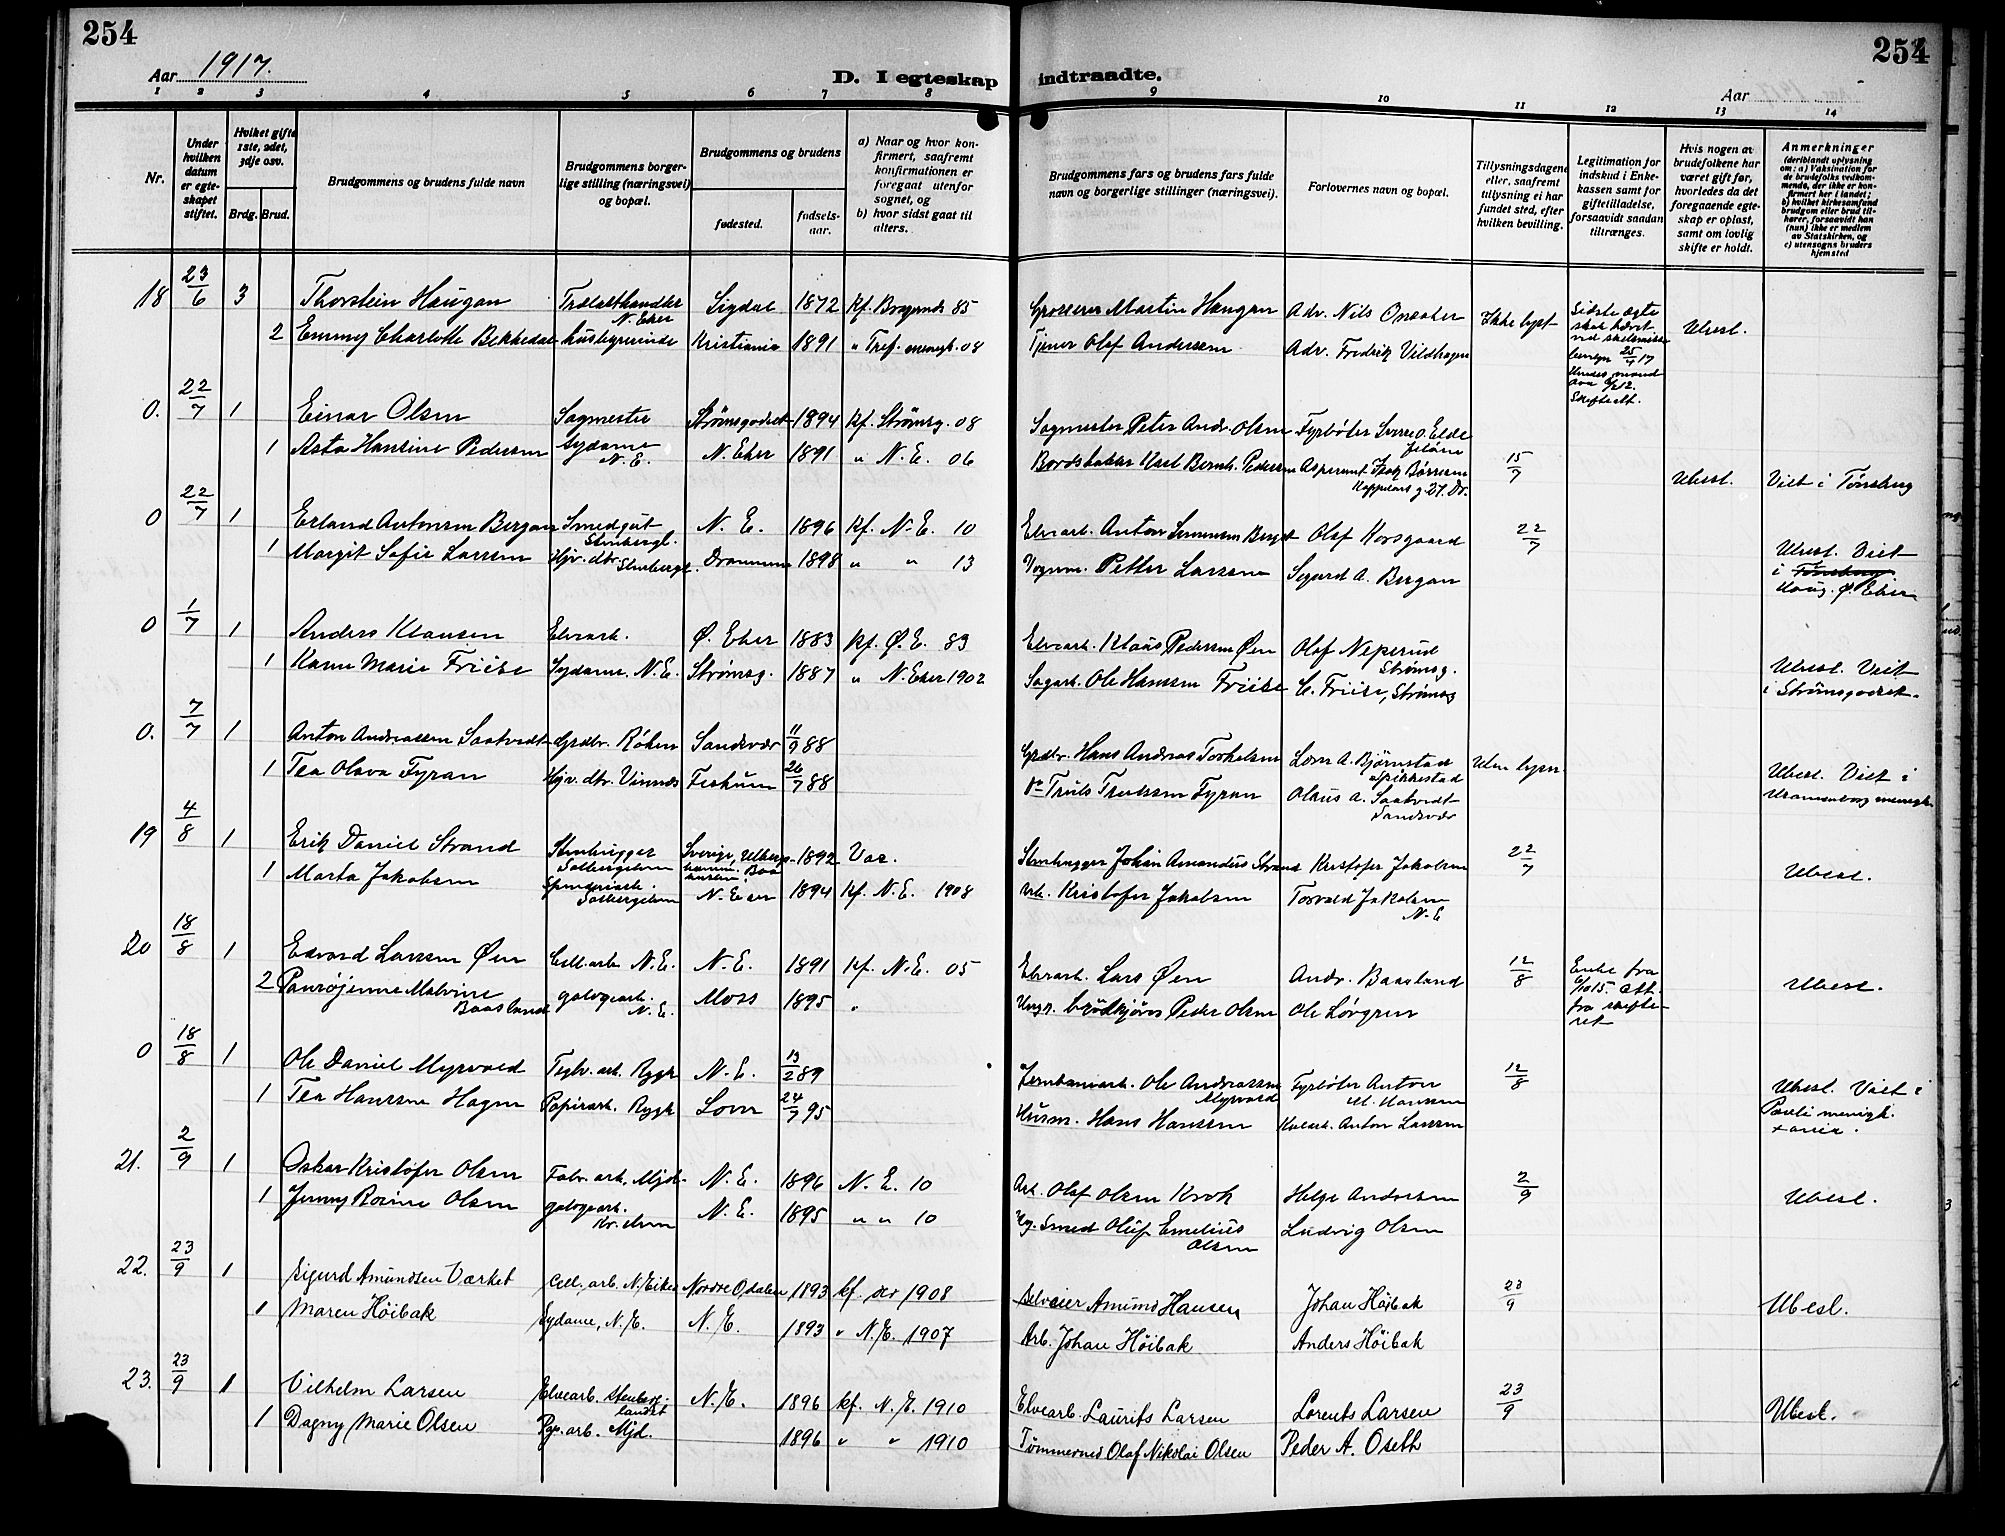 254
Aar 1917.
D. I egteskap
1 2 3 4 5 6 7 8
Nr.
Under hvilken datum er egteskapet stiftet.
Hvilket gifte 1ste, 2det, 3dje osv.
Brdg. Brud.
Brudgommens og brudens fulde navn
Brudgommens borgerlige stilling (næringsvei) og bopæl.
Brudgommens og brudens
fødested.
fødselsaar.
a) Naar og hvor konfirmert, saafremt konfirmationen er foregaat utenfor sognet, og b) hvor sidst gaat til alters.
indtraadte.
254
Aar
9 10 11 12 13 14
Brudgommens fars og brudens fars fulde navn og borgerlige stillinger (næringsvei).
Forlovernes navn og bopæl.
Tillysningsdagene eller, saafremt tillysning ei har fundet sted, efter hvilken bevilling.
Legitimation for indskud i Enkekassen samt for giftetilladelse, forsaavidt saadan tiltrænges.
Hvis nogen av brudefolkene har været gift før, hvorledes da det foregaaende egteskap er opløst, samt om lovlig skifte er holdt.
Anmerkninger
(deriblandt oplysning om: a) Vaksination for de brudefolks vedkommende, der ikke er konfirmert her i landet; b) hvilket kirkesamfund brudgom eller brud tilhører, forsaavidt han (hun) ikke er medlem av Statskirken, og c) utensogns bruders hjemsted
18 23/6 3 Thorstein Haugan Trælasthandler N. Eker Sigdal 1872 kf. Bragernes 85 Grosserer Martin Haugan Adv. Nils Onsaker Ikke lyst
2 Emmy Charlotte Bekkedal husbyrerinde Kristiania 1891 " Tref. menigh. 08 Tjener Olaf Andersen Adv. Fredrik Vildhagen Ubesl.
0. 22/7 1 Einar Olsen Sagmester Strømsgodset 1894 kf. Strømsg. 08 Sagmester Peter Andr. Olsen Fyrbøter Sverre O. Elde
1 Asta Hansine Pedersen Sydame N.E. N. Eker 1891 " N.E. 06 Bordstabler Karl Bernh. Pedersen 15/7 Ubesl. Viet i Tønsberg
0 22/7 1 Erland Antonsen Bergan Smedgut Stenbergl. N. E. 1896 kf. N.E. 10 Elvearb. Anton Olaf Korsgaard 22/7
1 Margit Sofie Larsen Hjv. dtr. Stenbergl. Drammen 1898 " " 13 Vognm. Petter Larsen Sigurd A. Bergan Ubesl. Viet i Tønsberg Haug. Ø. Eker
0 1/7 1 Anders Klausen Elvearb. Ø. Eker 1883 kf. Ø.E. 83 Elvearb. Klaus Pedersen Øen Olaf Neperud Strømsg.
1 Karen Marie Friise Sydame. N.E. Strømsg. 1887 " N. Eker 1902 Sagarb. Ole Hansen Friise C. Friise, Strømsg Ubesl. Viet i Strømsgodset.
0. 7/7 1 Anton Andreassen Saatvedt Grdbr. Røken Sandsvær 11/9 88 Grdbr. Hans Andreas Torkelsen Lorn A. Bjørnstad Spikkestad Uten lysn.
1 Tea Olava Fyran Hjv. dtr. Vinnæs Fiskum 26/7 88 Do Truls Trulssen Fyran Olaus A. Saatvedt Sandsvær Ubesl. Viet i Uranienborg menigh.
19 4/8 1 Erik Daniel Strand Stenhugger Solbergelven Sverige, 1892 Vac. Stenhugger Johan Amandus Strand Kristofer Jakobsen 22/7
1 Marta Jakobsen Spinderiarb. Solbergelven N. Eker 1894 kf. N.E. 1908 Arb. Kristofer Jakobsen Torvald Jakobsen N.E Ubesl.
20 18/8 1 Edvard Larsen Øen Cell. arb. N.E. N.E. 1891 kf. N.E. 05 Elvearb. Lars Øen Andr. Baasland 12/8 Enke fra 6/10 15. Att. fra skifteret Ubesl.
2 Malvine Baasland galogearb. N.E. Moss 1895 " Ungk. Brødkjører Peder Olsen Ole Løvgren
0 18/8 1 Ole Daniel Myrvold Teglv. arb. Rygh N.E. 13/2 89 Jernbanearb. Ole Andreassen Myrvold Fyrbøter Anton M. Hansen 12/8
1 Tea Hansine Hagen Papirarb. Rygh Lom 24/7 95 Husm. Hans Hansen Anton Larsen Ubesl. Viet i Pauli menigh.
21. 2/9 1 Oskar Kristofer Olsen Fabr. arb. Mjd. N.E. 1896 N.E. 10 Arb. Olaf Olsen Krok Helge Andersen 2/9 Ubesl.
1 Jenny Rosine Olsen galogearb. N.E. 1895 " " 10 Smed Oluf Emelius Olsen Ludvig Olsen
22. 23/9 1 Sigurd Amundsen Værket Cell. arb. N. Eiker Nordre Odalen 1893 kf. 1908 Selveier Amund Hansen Johan Høibak 23/9 Ubesl.
1 Maren Høibak Sydame, N.E. N.E. 1893 " N.E. 1907 Arb. Johan Høibak Anders Høibak
23. 23/9 1 Vilhelm Larsen Elvearb. Stenberglandet N.E. 1896 kf. N.E. 1910 Elvearb. Laurits Larsen Lorents Larsen 23/9 Ubesl.
1 Dagny Marie Olsen Pap. arb. Mjd. 1896 " " 1910 Tømmermd Olaf Nikolai Olsen Peder A. Oseth